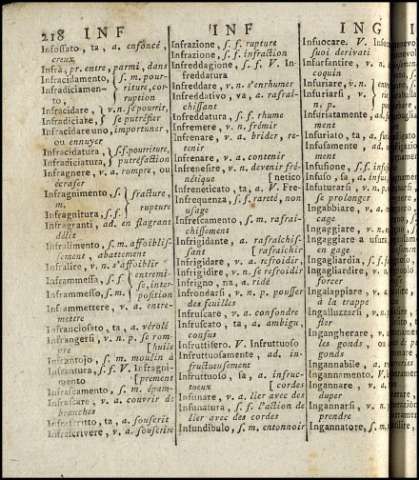 218 INF INF ING
Infossato, ta, a. enfoncé,
creux
Infrà, pr. entre, parmi, dans
Infracidamento, s. m. pour-
Infradiciamen- riture, cor-
to, ruption
Infracidare, v. n. se pourrir,
Infradiciare, se putréfier
Infracidare uno, importuner,
ou ennuyer
Infracidatura, s. f. pourriture,
Infradiciatura, putréfaction
Infragnere, v. a. rompre, ou
écraser
Infragnimento, s. fracture,
m. rupture
Infragnitura, s. f.
Infragranti, ad. en flagrant
délit
Infralimento, s. m. affoiblis-
sement, abattement
Infralire, v. n. s'affoiblir
Inframmessa, s. f. entremi-
se, inter-
Inframmesso, s. m. position
Inframmettere, v. a. entre-
mettre
Infranciosato, ta, a. vérolé
Infrangersi, v. n. p. se rom-
pre [huile
Infrantojo, s. m. moulin à
Infrantura, s. f. V. Infragni-
mento [prement
Infrascamento, s. m.
Infrascare, v. a. couvrir de
branches
Infrascritto, ta, a. souscrit
Infrascrivere, v. a. souscrire
Infrazione, s. f. rupture
Infrazione, s. f. infraction
Infreddagione, s. f. V. In-
freddatura
Infreddare, v. n. s'enrhumer
Infreddativo, va, a. rafraî-
chissant
Infreddatura, s. f. rhume
Infremere, v. n. frémir
Infrenare, v. a. brider, re-
tenir
Infrenare, v. a. contenir
Infrenesire, v. n. devenir fré-
nétique [netico
Infreneticato, ta, a. V. Fre-
Infrequenza, s. f. rareté, non
usage
Infrescamento, s. m. rafraî-
chissement
Infrigidante, a. rafraîchis-
sant [rafraîchir
Infrigidare, v. a. refroidir,
Infrigidire, v. n. se refroidir
Infrigno, na, a. ridé
Infrondarsi, v. n. p. pousser
des feuilles
Infruscare, v. a. confondre
Infruscato, ta, a. ambigu
confus
Infruttifero. V. Infruttuoso
Infruttuosamente, ad. in-
fructueusement
Infruttuoso, sa, a. infruc-
tueux [cordes
Infunare, v. a. lier avec des
Infunatura, s. f. l'action de
lier avec des cordes
Infundibulo, s. m. entonnoir
Infuocare. V.
suoi derivati
Infurfantire, v.
coquin
Infuriare, v. n.
Infuriarsi, v.
n. p.
Infuriatamente, ad.
sement
Infuriato, ta, a.
Infusamente, ad.
ment
Infusione, s. f.
Infuso, sa, a.
Infuturarsi, v. n. p.
se prolonger
Ingabbiare, v. a.
cage
Ingaggiare, v. a.
Ingaggiare a usura,
en gage
Ingagliardia, s. f.
Ingagliardire, v. a.
forcer
Ingalappiare, v. a.
à la trappe
Ingalluzzarsi, v. n.
fler
Ingangherare, v. a.
les gonds, ou
gonds
Ingannabile, a.
Ingannamento. V.
Ingannare, v. a.
duper
Ingannarsi, v. n.
prendre
Ingannatore, s. m.